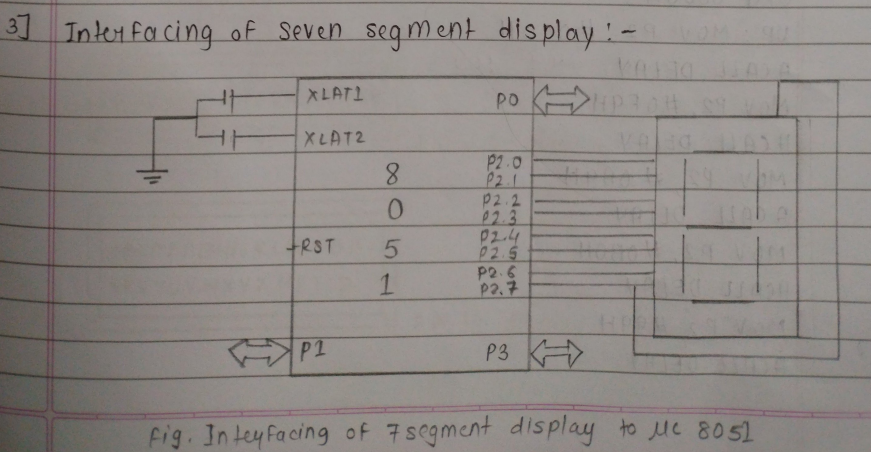 3] Interfacing of seven segment display :-
XLAT1
P0
XLAT2
P2.0
8
P2.1
P2.2
0
P2.3
P2.4
RST
5
P2.5
P2.6
1
P2.7
P1
P3
fig. Inteyfacing of 7 segment display to µc 8051